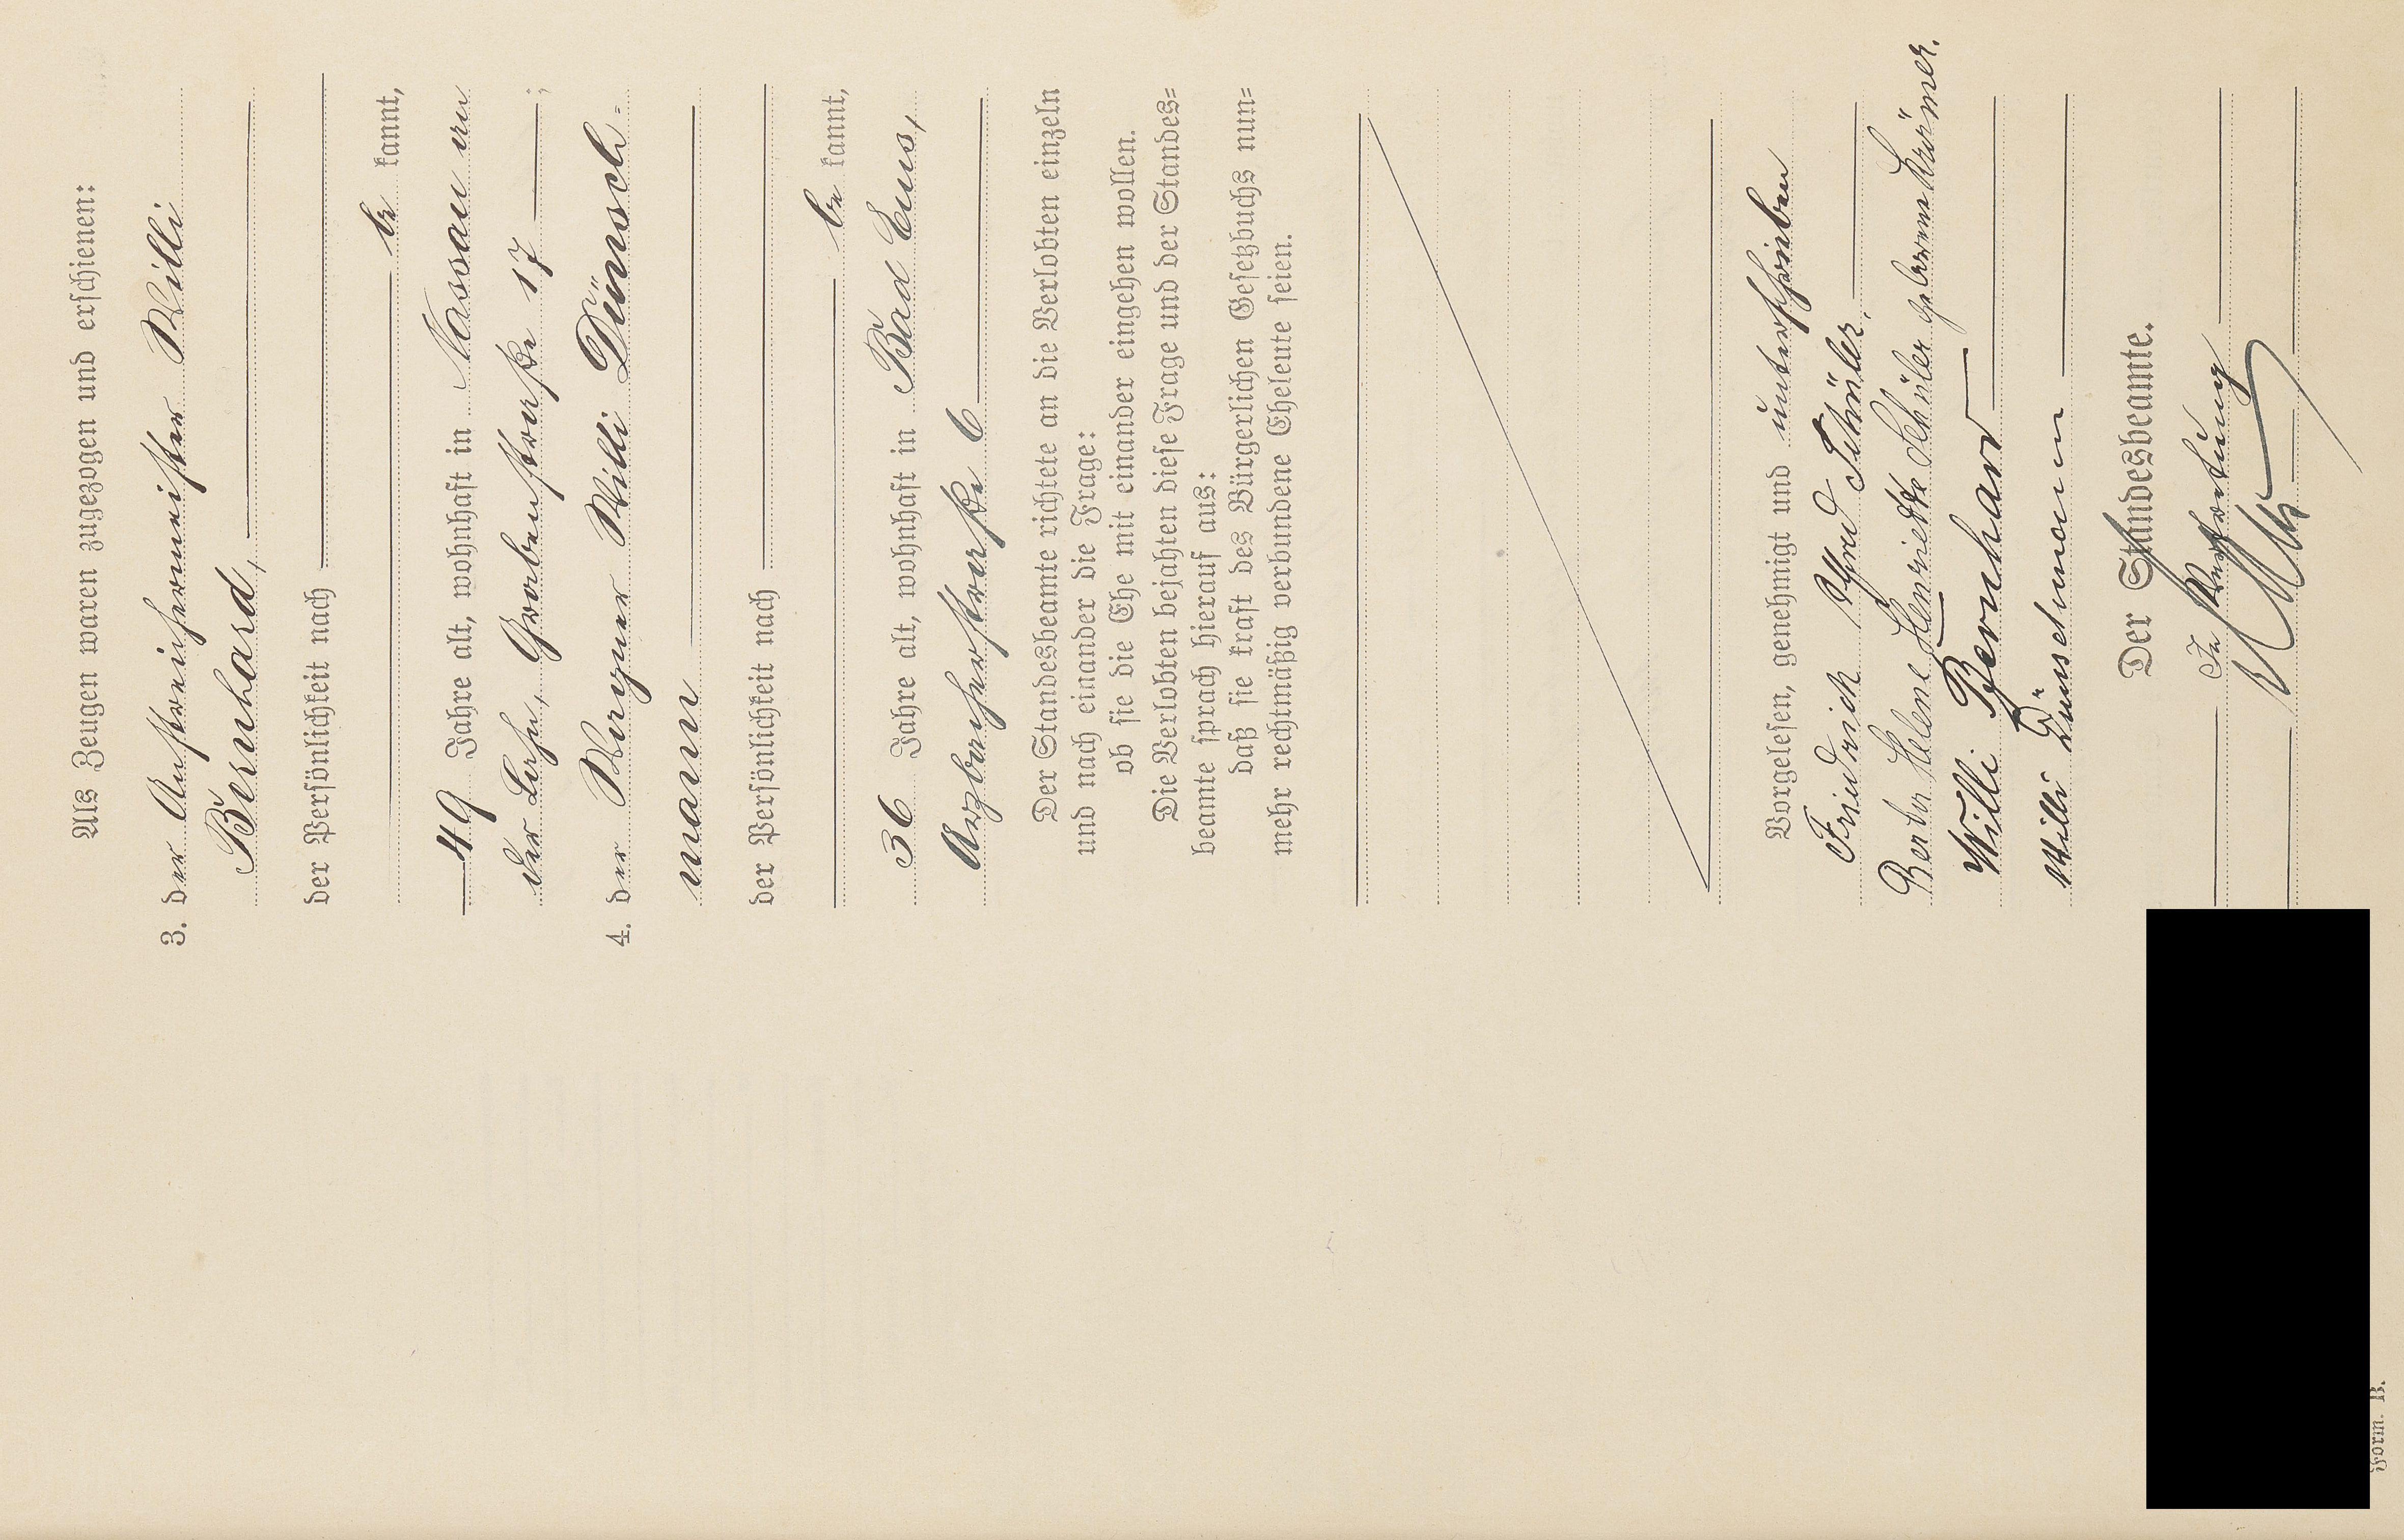 Als Zeugen waren zugezogen und erschienen:
3. der Anstreichermeister Willi
Bernhard,
der Persönlichkeit nach
be kannt,
49 Jahre alt, wohnhaft in Nassau an
der Lahn, Grabenstraße 17 ;
4. der Willi Dünsch=
mann
der Persönlichkeit nach
be kannt,
36 Jahre alt, wohnhaft in Bad Ems,
Arzbacherstraße 6
Der Standesbeamte richtete an die Verlobten einzeln
und nach einander die Frage:
ob sie die Ehe mit einander eingehen wollen.
Die Verlobten bejahten diese Frage und der Standes=
beamte sprach hierauf aus:
daß sie kraft des Bürgerlichen Gesetzbuchs nun=
mehr rechtmäßig verbundene Eheleute seien.
Vorgelesen, genehmigt und unterschrieben
Friedrich Schüler.
Berta Helene Henriette Schüler geborene Krämer.
Willi Bernhard
Willi Dünschmann
Der Standesbeamte.
In Vertretung
Form. B.